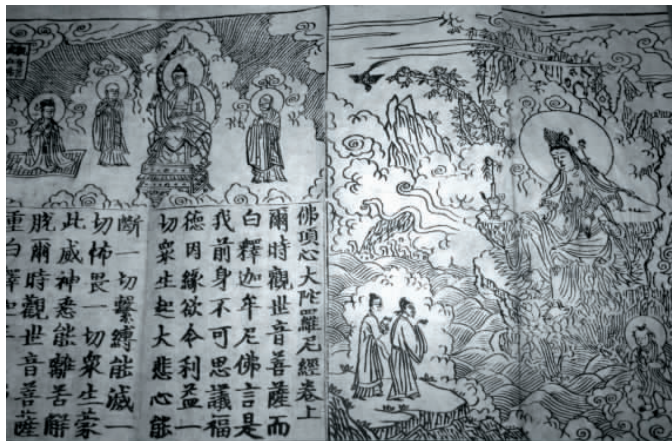 佛頂心大陀羅尼經卷上
爾時觀世音菩薩而
白釋迦牟尼佛言是
我前身不可思議福
德因緣欲令利益一
切衆生起大悲心能
斷一切繫縛能滅一
切怖畏一切衆生蒙
此威神悉能離苦解
脫爾時觀世音菩薩
重白釋迦